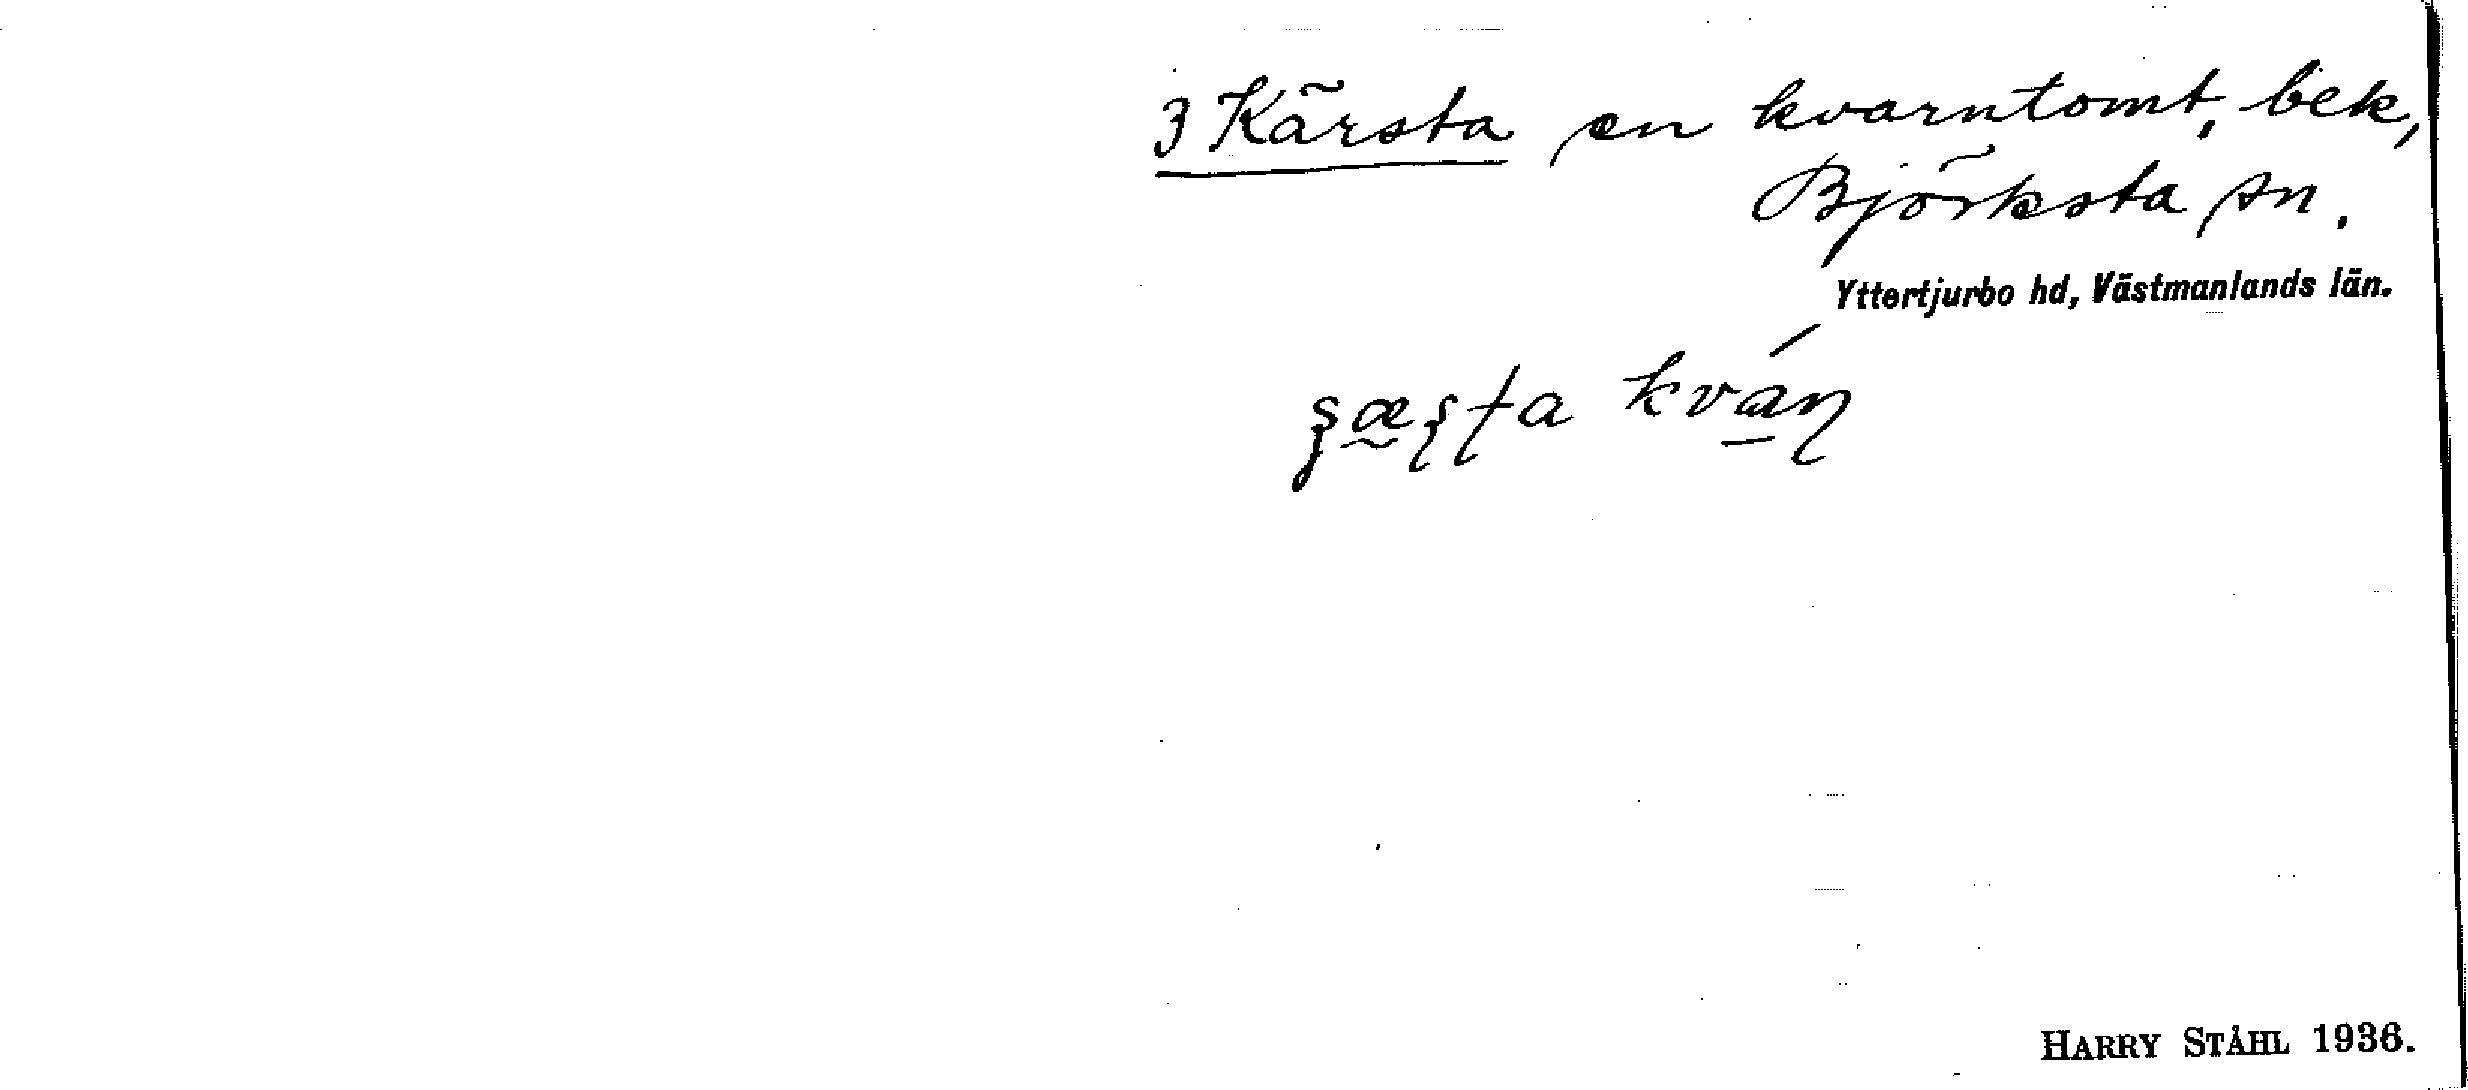 3 Kärsta en kvarntomt, bek,
Björksta sn.
Yttertjurbo hd, Västmanlands län.
kván
HARRY STÅHL 1936.